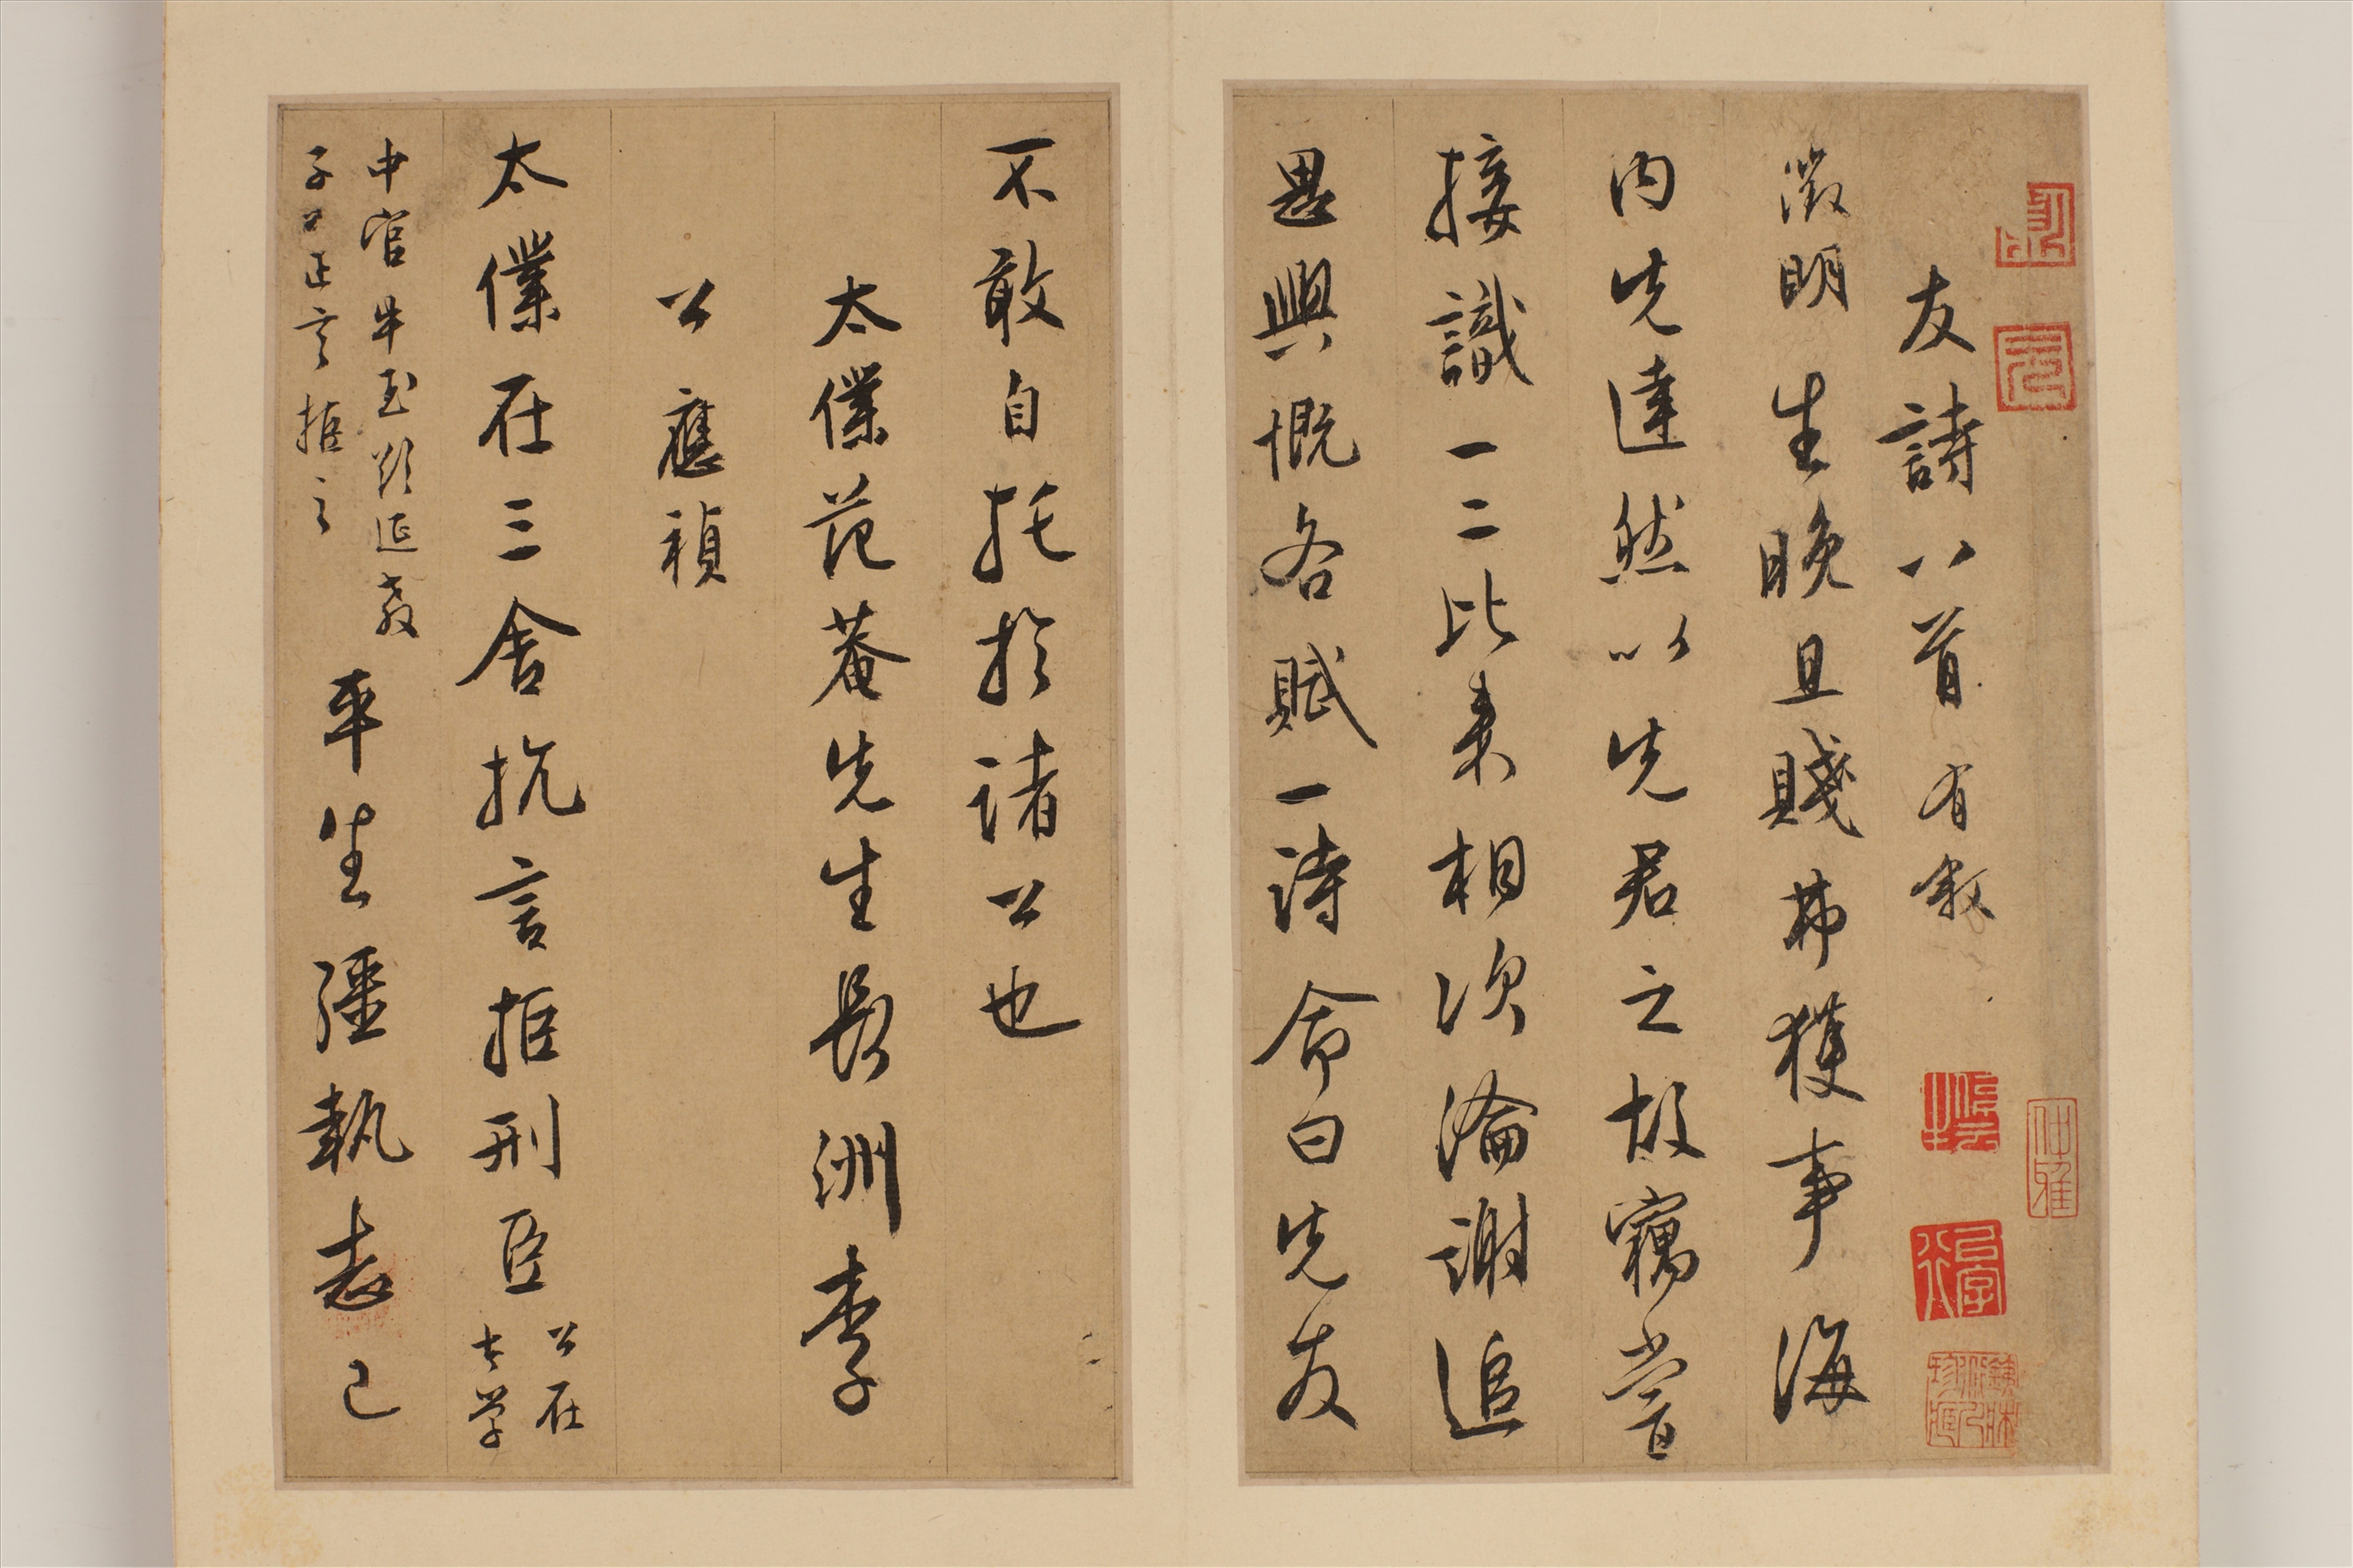 友詩八首有敘
徵明生晚且賤弗獲事海
內先達然以先君之故竊嘗
接識一二比來相次淪謝追
思興慨各賦一詩命曰先友
不敢自托於諸公也
太僕范菴先生長洲李
公應禎
太僕在三舍抗言拒刑臣
公在
太學
中官牛玉欲延教
子公正言拒之
平生彊執志已